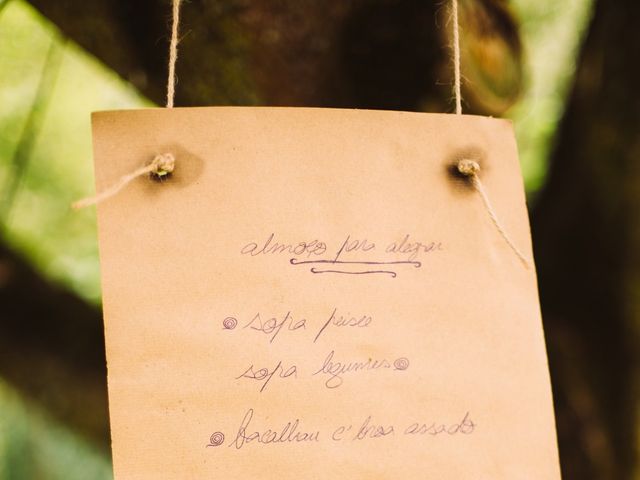 almoço para alegrar
sopa peixe
sopa legumes
bacalhau c' broa assado